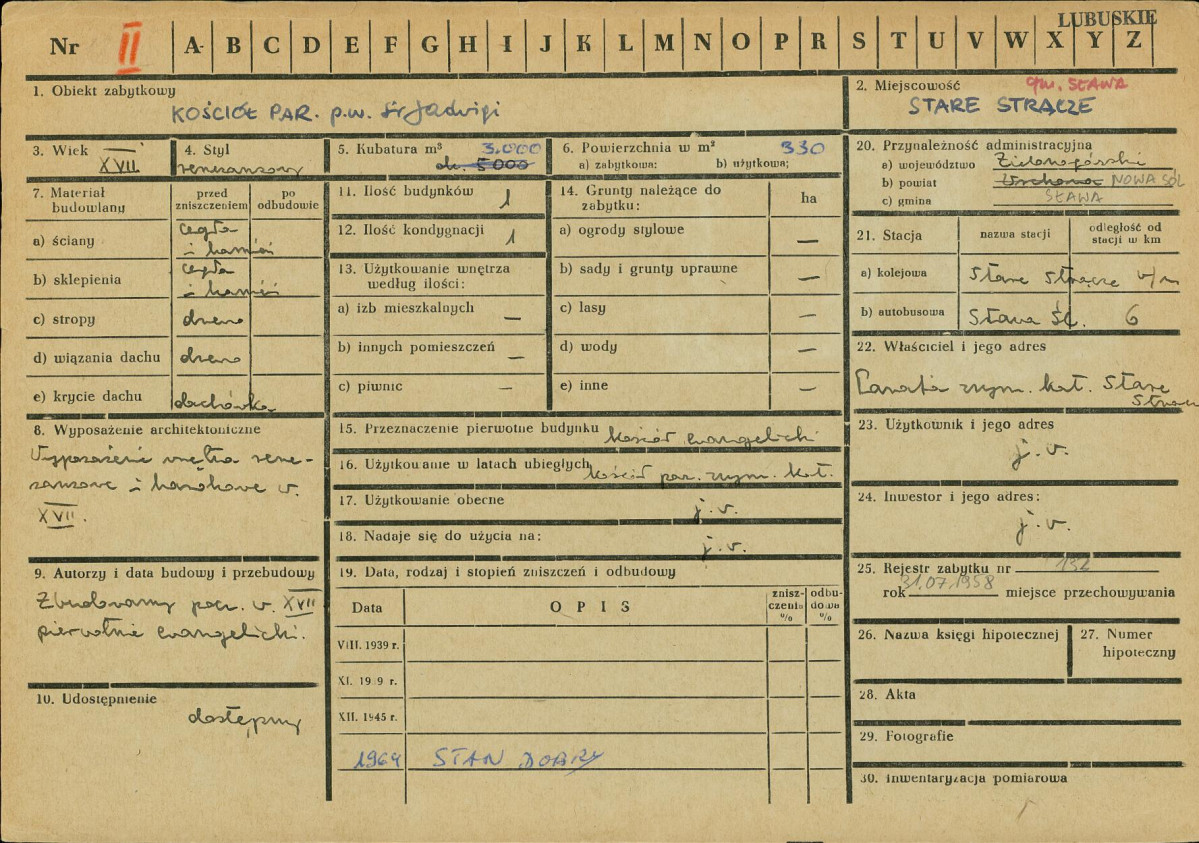 LUBUSKIE
Nr II A B C D E F G H I J K L M N O P R S T U V W X Y Z
1. Obiekt zabytkowy
KOŚCIÓŁ PAR. p.w. Św Jadwigi
2. Miejscowość gm. SŁAWA
STARE STRĄCZE
3. Wiek XVII
4. Styl
renesansowy
5. Kubatura m³ 3.000
ok. 5000
6. Powierzchnia w m² 330
a) zabytkowa: b) użytkowa;
7. Materiał budowlany
przed zniszczeniem
po odbudowie
a) ściany cegła i kamień
b) sklepienia cegła i kamień
c) stropy drewno
d) wiązania dachu drewno
e) krycie dachu dachówka
8. Wyposażenie architektoniczne
Wyposażenie wnętrza rene-
sansowe i barokowe w.
XVII.
9. Autorzy i data budowy i przebudowy
Zbudowany pocz. w. XVII
pierwotnie ewangelicki.
10. Udostępnienie
dostępny
11. Ilość budynków 1
12. Ilość kondygnacji 1
13. Użytkowanie wnętrza
według ilości:
a) izb mieszkalnych —
b) innych pomieszczeń —
c) piwnic —
14. Grunty należące do
zabytku:
ha
a) ogrody stylowe —
b) sady i grunty uprawne —
c) lasy —
d) wody —
e) inne —
15. Przeznaczenie pierwotne budynku kościół ewangelicki
16. Użytkowanie w latach ubiegłych kościół par. rzym. kat.
17. Użytkowanie obecne j.w.
18. Nadaje się do użycia na: j.w.
19. Data, rodzaj i stopień zniszczeń i odbudowy
Data
OPIS
znisz-
czenia
%
odbu-
dowa
%
VIII. 1939 r.
XI. 19 9 r.
XII. 1945 r.
1964 STAN DOBRY
20. Przynależność administracyjna
a) województwo Zielonogórskie
b) powiat Wschowa NOWA SÓL
c) gmina SŁAWA
21. Stacja
nazwa stacji
odległość od
stacji w km
a) kolejowa Stare Strącze w/m
b) autobusowa Sława Śl. 6
22. Właściciel i jego adres
Parafia rzym. kat. Stare
Strącze
23. Użytkownik i jego adres
j.w.
24. Inwestor i jego adres:
j.w.
25. Rejestr zabytku nr 132
rok 31.07.1958 miejsce przechowywania
26. Nazwa księgi hipotecznej
27. Numer
hipoteczny
28. Akta
29. Fotografie
30. Inwentaryzacja pomiarowa